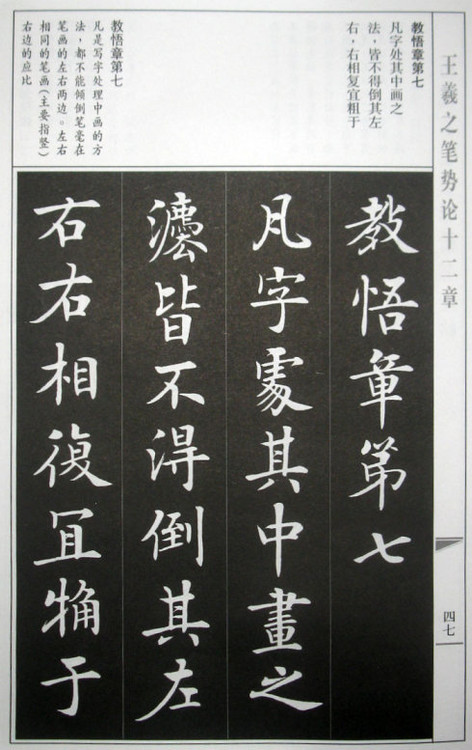 王羲之笔势论十二章
四七
教悟章第七
凡字处其中画之
法，皆不得倒其左
右，右相复宜粗于
教悟章第七
凡是写字处理中画的方
法，都不能倾倒笔毫在
笔画的左右两边。左右
相同的笔画（主要指竖）
右边的应比
教悟章第七
凡字處其中畫之
灋皆不得倒其左
右右相復冝觕于